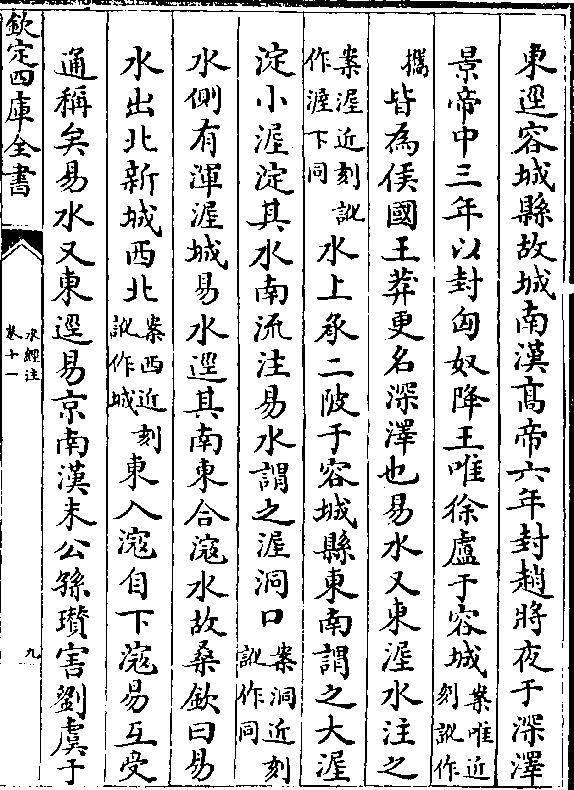 東逕容城縣故城南漢髙帝六年封趙將夜于深澤
景帝中三年以封匈奴降王唯徐盧于容城案唯近刻訛作
㩦皆為侯國王莽更名深澤也易水又東渥水注之
案渥近刻訛作渥下同水上承二陂于容城縣東南謂之大渥
淀小渥淀其水南流注易水謂之渥洞口案洞近刻訛作同
水側有渾渥城易水逕其南東合滱水故桑欽曰易
水出北新城西北案西近刻訛作城東入滱自下滱易互受
通稱矣易水又東逕易京南漢末公孫瓚害劉虞于
欽定四庫全書
水經注
卷十一
九